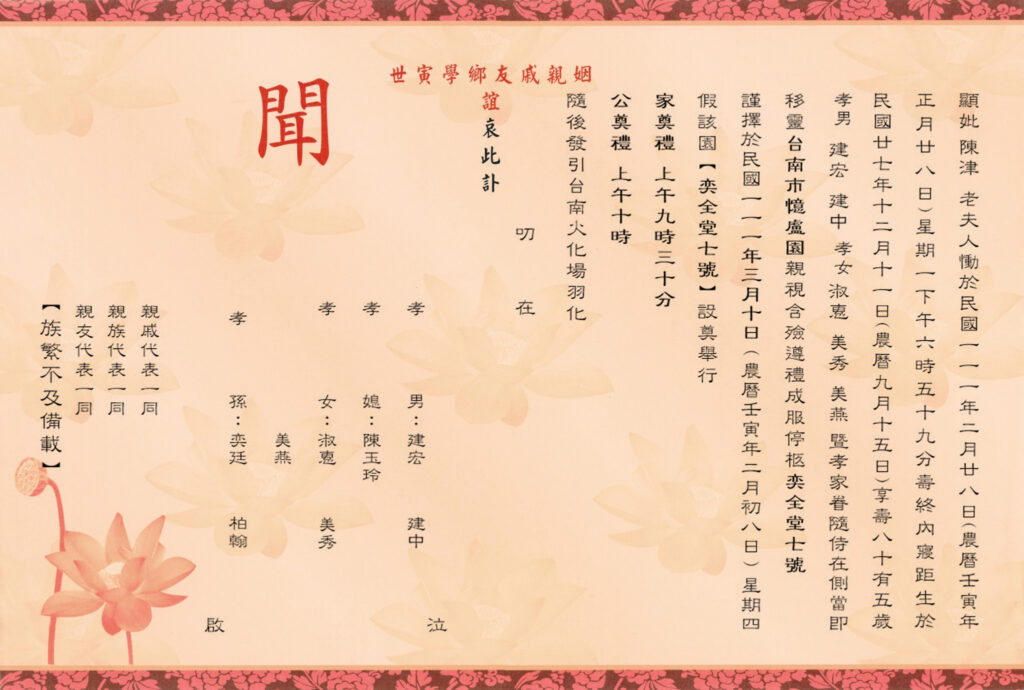 顯妣 陳津 老夫人慟於民國一一一年二月廿八日(農曆壬寅年
正月廿八日)星期一下午六時五十九分壽終內寢距生於
民國廿七年十二月十一日(農曆九月十五日)享壽八十有五歲
孝男 建宏 建中 孝女 淑惪 美秀 美燕 暨孝家眷隨侍在側當即
移靈台南市憶盧園親視含殮遵禮成服停柩奕全堂七號
謹擇於民國一一一年三月十日(農曆壬寅年二月初八日)星期四
假該園【奕全堂七號】設奠舉行
家奠禮 上午九時三十分
公奠禮 上午十時
隨後發引台南火化場羽化
叨在
姻親戚友鄉學寅世
誼哀此訃
聞
孝男:建宏 建中 泣
孝媳:陳玉玲
孝女:淑惪 美秀
美燕
孝孫:奕廷 柏翰
啟
親戚代表一同
親族代表一同
親友代表一同
【族繁不及備載】